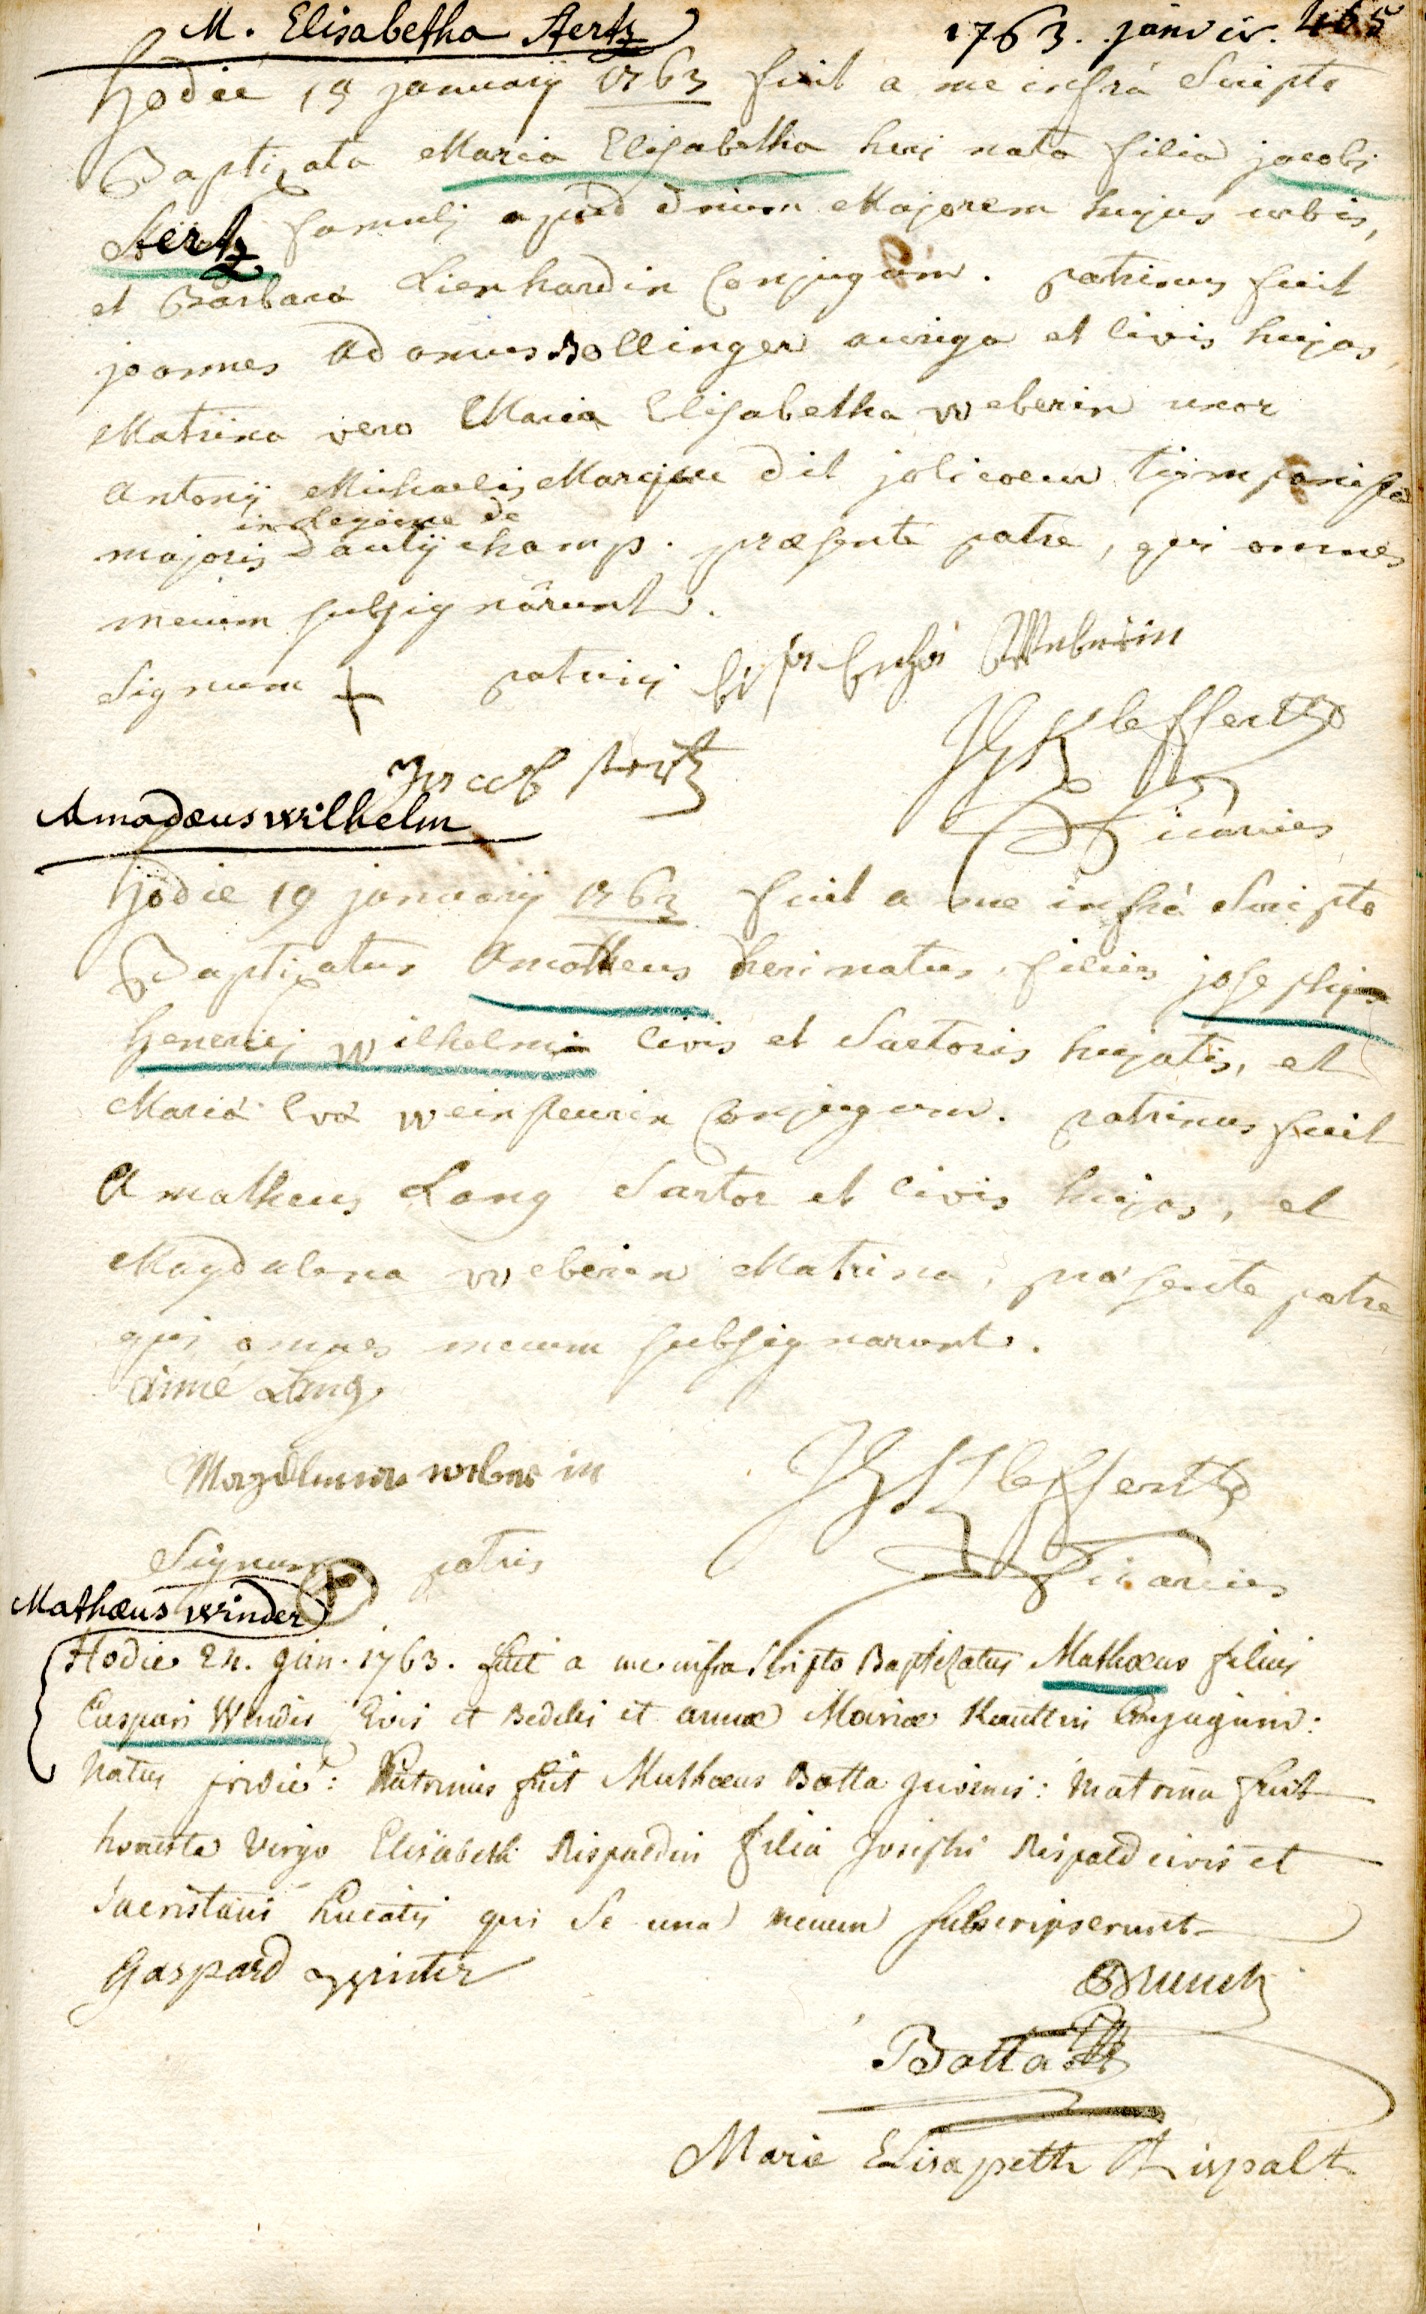 M. Elisabetha Hertz
1763. janvier. 465
Hodie 19 januarij 1763 fuit a me infrà Scripto
Baptizata Maria Elisabetha heri nata filia jacobi
Hertz famulj apud dnum Majorem hujus urbis,
et Barbara Lienhardin Conjugum. patrinus fuit
joannes Adamus Bollinger auriga et Civis hujas,
Matrina vero Maria Elisabetha weberin uxor
Antonij Michaelis dit jolicoeur tijmpanistæ
in Legione de
majoris Dautijchamp. præsente patre, qui omnes
mecum subsignârunt.
Signum + patrinj Weberin
Jacob Hertz
JG Kleffert
Vicarius
Amadæus wilhelm
Hodie 19 januarij 1763 fuit a me infrà Scripto
Baptizatus Amatheus heri natus, filius josephi
Henerici wilhelmi Civis et Sartoris hujatis, et
Mariâ Evâ Conjugum. patrinus fuit
Amatheus Lang Sartor et Civis hujas, et
Magdalena weberin Matrina, præsente patre
qui omnes mecum subsignarunt.
aimé Lang
Magdlena weberin
JG Kleffert
Vicarius
Signum + patris
Mathæus winder
Hodie 24. Jan. 1763. fuit a me infra Scripto Baptizatus Mathæus filius
Caspari Civis et Bedelli et annæ Mariæ Conjugum:
Natus pridie: Patrinus fuit Mathæus Batta Juvenis: Matrina fuit
honesta Virgo Elisabeth Rispaldin filia Josephi Rispald civis et
Sacristani hujatis qui Se una mecum Subscripserunt
Gaspard
Brunck
Batta
Marie Elisapetth Rispalt